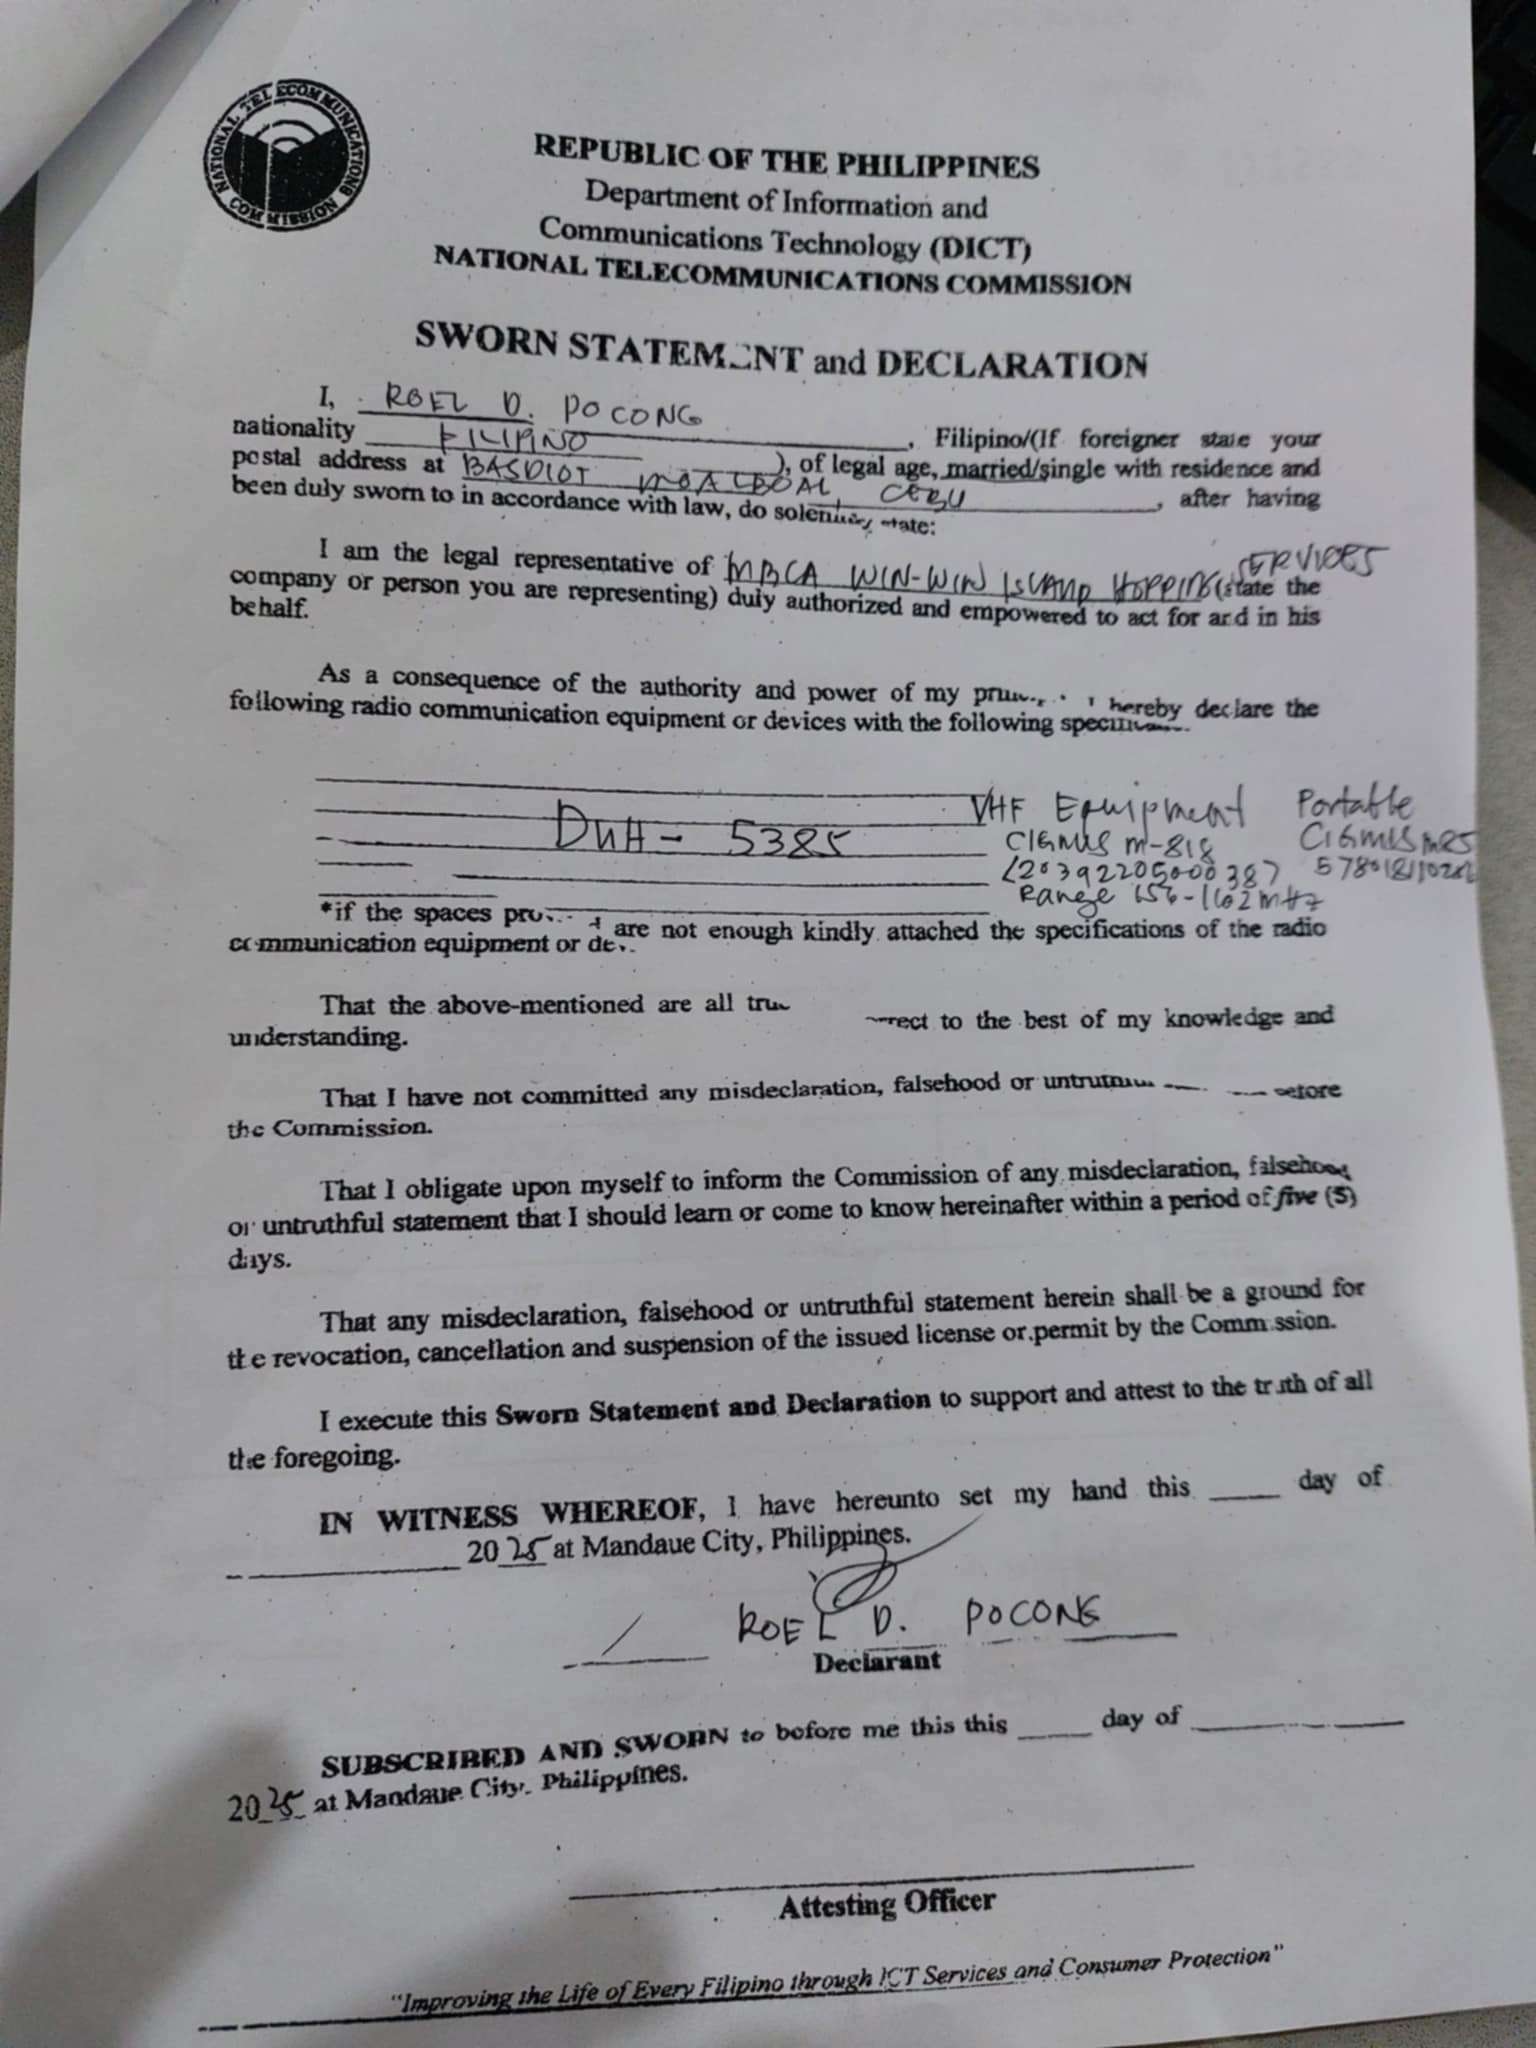 NATIONAL TELECOMMUNICATIONS COMMISSION
REPUBLIC OF THE PHILIPPINES
Department of Information and
Communications Technology (DICT)
NATIONAL TELECOMMUNICATIONS COMMISSION
SWORN STATEMENT and DECLARATION
I, ROEL D. POCONG
nationality FILIPINO, Filipino/(If foreigner state your
postal address at BASDIOT MOALBOAL, CEBU), of legal age, married/single with residence and
, after having
been duly sworn to in accordance with law, do solemnly state:
I am the legal representative of MBCA WIN-WIN ISLAND HOPPING SERVICES (state the
company or person you are representing) duly authorized and empowered to act for and in his
behalf.
As a consequence of the authority and power of my I hereby declare the
following radio communication equipment or devices with the following
DUH- 5385
VHF Equipment
CIGMUS M-818
<20392205000387
Range 156-162 MHz
Portable
CIGMUS
*if the spaces are not enough kindly attached the specifications of the radio
communication equipment or
That the above-mentioned are all to the best of my knowledge and
understanding.
That I have not committed any misdeclaration, falsehood or before
the Commission.
That I obligate upon myself to inform the Commission of any misdeclaration, falsehood
or untruthful statement that I should learn or come to know hereinafter within a period of five (5)
days.
That any misdeclaration, falsehood or untruthful statement herein shall be a ground for
the revocation, cancellation and suspension of the issued license or permit by the Commission.
I execute this Sworn Statement and Declaration to support and attest to the truth of all
the foregoing.
IN WITNESS WHEREOF, I have hereunto set my hand this ____ day of
____ 2025 at Mandaue City, Philippines.
ROEL D. POCONG
Declarant
SUBSCRIBED AND SWORN to before me this this ____ day of ____
2025 at Mandaue City, Philippines.
Attesting Officer
"Improving the Life of Every Filipino through ICT Services and Consumer Protection"